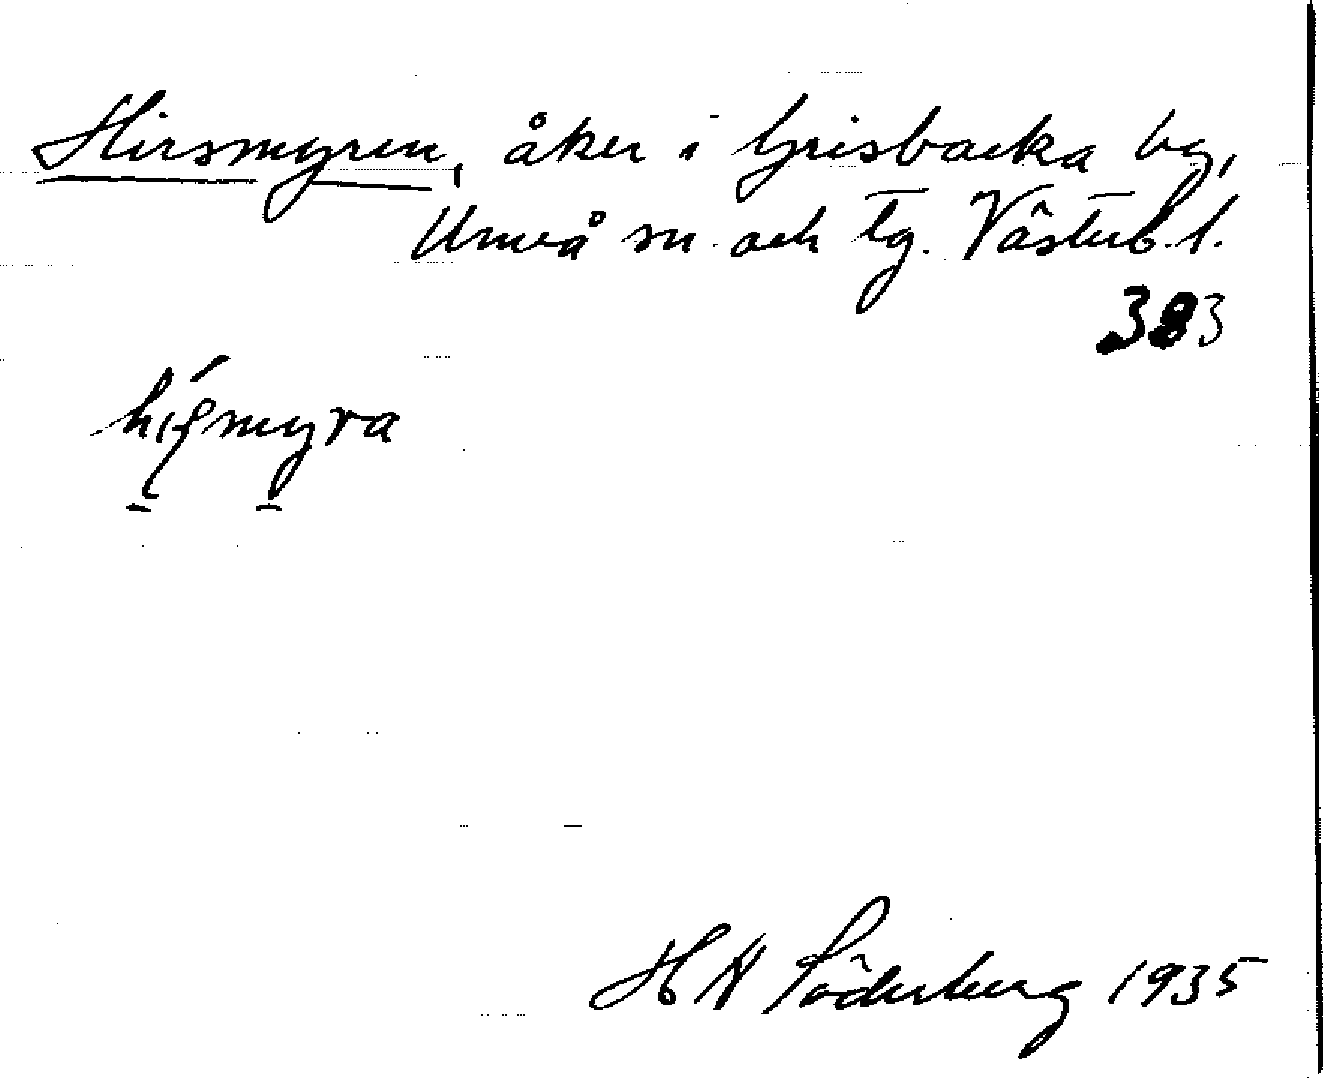 Hirsmyren, åker i Grisbacka by,
Umeå sn och tg. Västerb. l.
383
H N Söderberg 1935